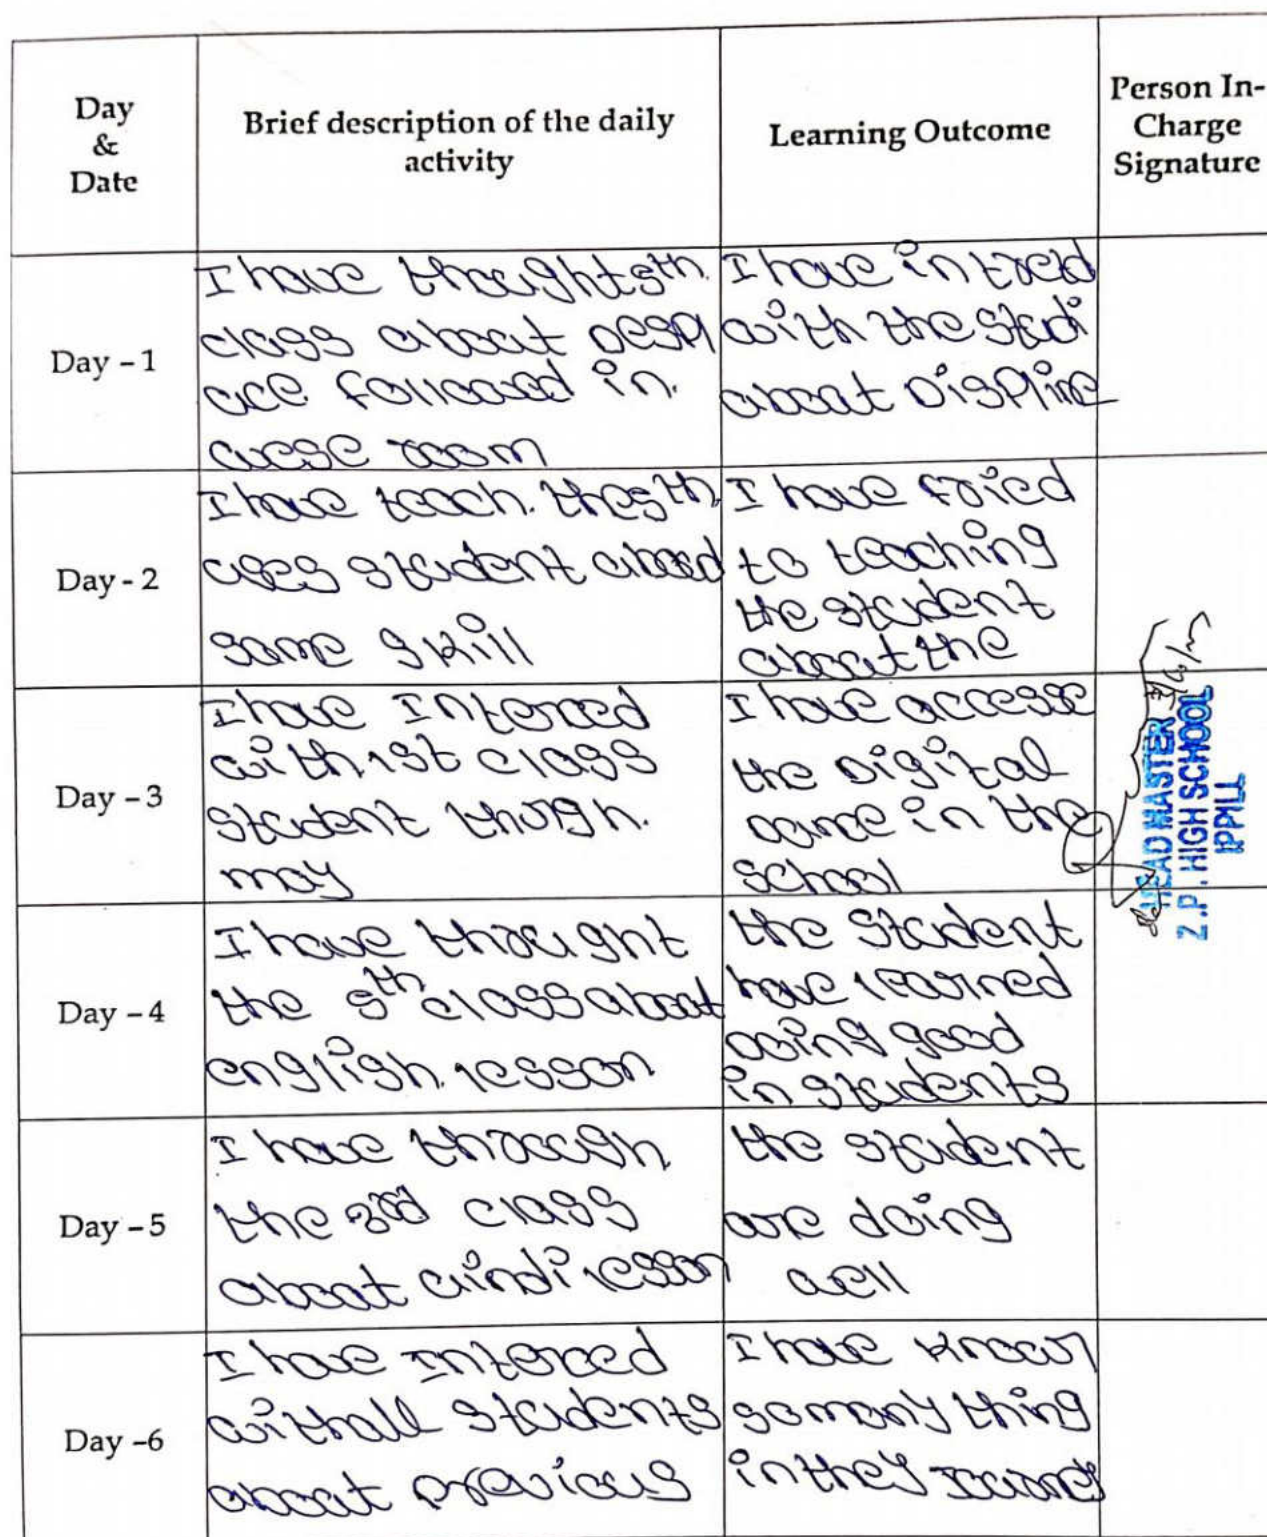 Day
&
Date
Brief description of the daily
activity
Learning Outcome
Person In-
Charge
Signature
Day - 1
I have thought 5th
class about
followed in
room
I have
with the studi
about Displine
Day - 2
I have teach. the 5th
student
some skill
I have
to teaching
the student
about the
Day - 3
I have Intered
with 1st class
student thorgh.
may
I have accesse
the Digital
in the
school
Day - 4
I have throught
the 5th class about
english lesson
the student
have learned
doing good
in students
Day - 5
I have through
the 3rd class
about lesson
the student
are doing
well
Day -6
I have Intered
with all students
about previous
I have know
somany thing
in they
HEAD MASTER
Z.P. HIGH SCHOOL
IPPILL